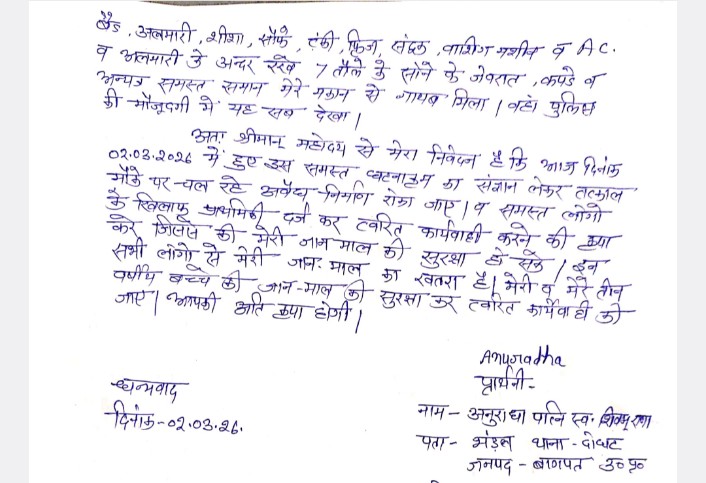 बैड, अलमारी, शीशा, सौफे, टंकी, फ्रिज, संदूक, वाशिग मशीन व A.C.
व अलमारी के अन्दर रखे 7 तौले के सोने के जेवरात, कपडे व
अन्यत्र समस्त समान मेरे मकान से गायब मिला। वहां पुलिस
की मौजूदगी में यह सब देखा।
अतः श्रीमान् महोदय से मेरा निवेदन है कि आज दिनांक
02.03.2026 में हुए इस समस्त घटनाक्रम का संज्ञान लेकर तत्काल
मौके पर चल रहे अवैध निर्माण रोका जाए। व समस्त लोगो
के खिलाफ प्राथमिकी दर्ज कर त्वरित कार्यवाही करने की कृपा
करे जिससे की मेरी जान माल की सुरक्षा हो सके। इन
सभी लोगो से मेरी जान-माल का खतरा है। मेरी व मेरे तीन
वर्षीय बच्चे की जान-माल की सुरक्षा कर त्वरित कार्यवाही की
जाए। आपकी अति कृपा होगी।
Anuradha
प्रार्थनी-
धन्यवाद
दिनांक-02.03.26.
नाम- अनुराधा पत्नि स्व.
पता- भंडल थाना-दोघट
जनपद-बागपत उ०प्र०